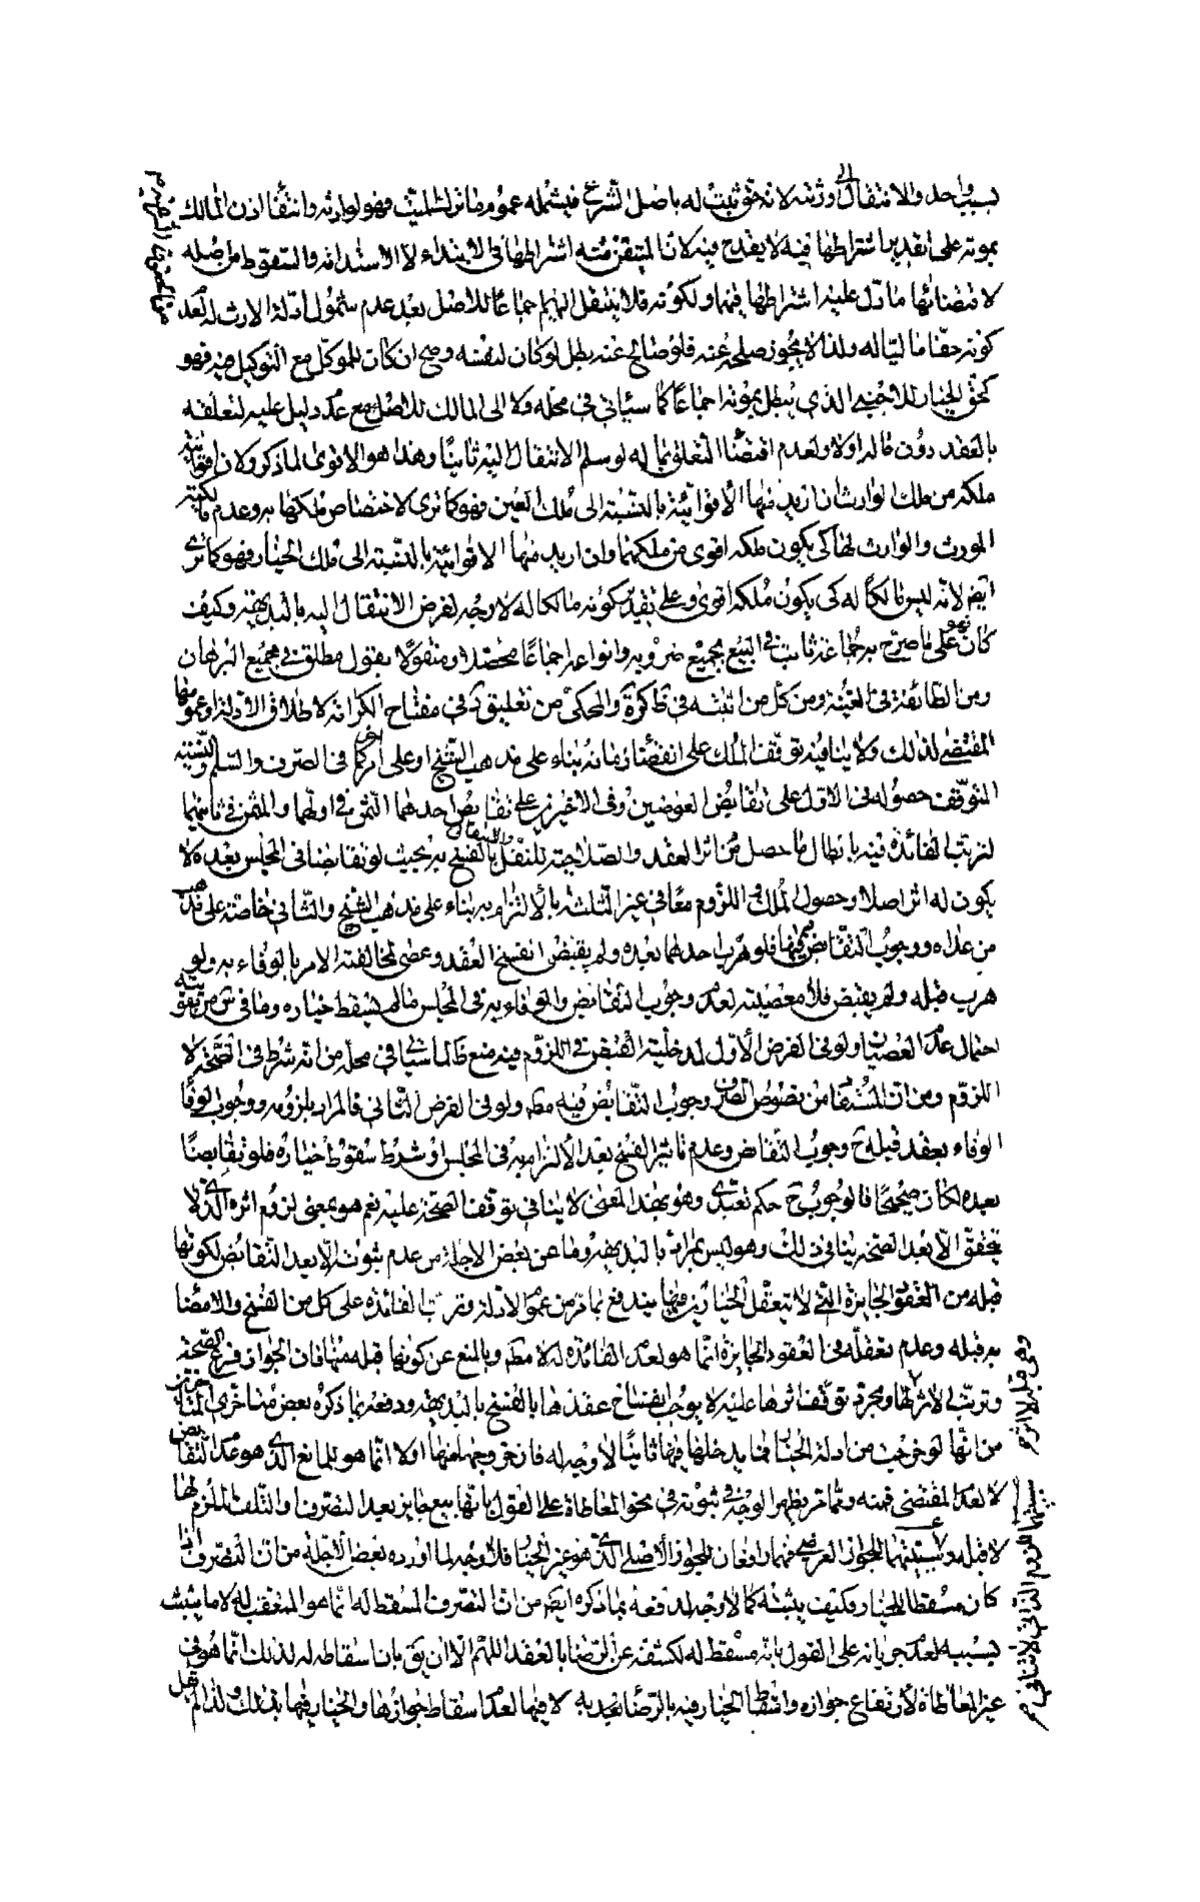 بسبب واحد والانتقال الى ورثته لانه حق ثبت له باصل الشرع فيشمله عموم ما ترك الميت فهو لوارثه وانتفاء اذن المالك
بموته على تقدير اشتراطها فيه لا يقدح فيه لان المتيقن منه اشتراطها في الابتداء لا الاستدامة والسقوط من اصله
لاقتضائها ما دل عليه اشتراطها فيهما ولكونه فلا ينتقل اليهم اجماعا للاصل بعد عدم شمول ادلة الارث له لعدم
كونه حقا ماليا له ولذا لا يجوز صلحه عنه فلو صالح عنه بطل لو كان لنفسه وصح ان كان للموكل مع التوكيل فيه فهو
كحق الخيار للاجنبي الذي يبطل بموته اجماعا كما سيأتي في محله ولا الى المالك للاصل مع عدم دليل عليه لتعلقه
بالعقد دون ماله اولا ولعدم اقتضاء التعلق بماله لو سلم الانتقال اليه ثانيا وهذا هو الاقوى لما ذكر ولان اقوائية
ملكه من ملك الوارث ان اريد منها الاقوائية بالنسبة الى ملك العين فهو كما ترى لاختصاص ملكها به وعدم مالكية
المورث والوارث لها كي يكون ملكه اقوى من ملكهما وان اريد منها الاقوائية بالنسبة الى ملك الخيار فهو كما ترى
ايضا لانه ليس مالكا له كي يكون ملكه اقوى وعلى تقدير كونه مالكا له لا وجه لفرض الانتقال اليه بالبديهة وكيف
كان فهو على ما صرح به جماعة ثابت في البيع بجميع ضروبه وانواعه اجماعا محصلا ومنقولا بقول مطلق في مجمع البرهان
وبين الطائفة في الغنية ومن كل من اثبته في ظ كرة والمحكي من تعليق د في مفتاح الكرامة لاطلاق الادلة او عمومها
المقتضى لذلك ولا ينافيه توقف الملك على انقضاء زمانه بناء على مذهب الشيخ او على امر آخر كما في الصرف والسلم والنسية
المتوقف حصوله في الاول على تقابض العوضين وفي الاخيرين على تقابض احدهما الثمن في اولهما والمثمن في ثانيهما
لترتب الفائدة فيه بابطال ما حصل من اثر العقد والصلاحية للنقل والانتقال بالفسخ به بحيث لو تقابضا في المجلس بعده لا
يكون له اثر اصلا وحصول الملك في اللزوم معا في غير الثلثة بالالتزام به بناء على مذهب الشيخ والثاني خاصة على مذهب
من عداه ووجوب التقابض فيهما فلو هرب احدهما بعده ولم يقبض انفسخ العقد وعصى لمخالفته الامر بالوفاء به ولو
هرب قبله ولم يقبض فلا معصية لعدم وجوب التقابض والوفاء به في المجلس ما لم يسقط خياره وما في ش من تقوية
احتمال عدم العصيان ولو في الفرض الاول لمدخلية القبض في اللزوم فيه منع ظ لما سيأتي في محله من انه شرط في الصحة لا
اللزوم ومن ان المستفاد من نصوص الصرف وجوب التقابض فيه مطلقا ولو في الفرض الثاني فالمراد بلزومه ووجوب الوفاء
الوفاء بعقد قبله ح وجوب التقابض وعدم تأثير الفسخ بعد الالتزام به في المجلس او شرط سقوط خياره فلو تقابضا
بعده لكان صحيحا فالوجوب ح حكم تعبدي وهو بهذا المعنى لا ينافي توقف الصحة عليه نعم هو بمعنى لزوم اثره الذي لا
يتحقق الا بعد الصحة ينافي ذلك وهو ليس بمراد بالبديهة وما عن بعض الاجلة من عدم ثبوته الا بعد التقابض لكونها
قبله من العقود الجايزة التي لا يتعقل الخيار فيها يندفع بما مر من عموم الادلة وترتب الفائدة على كل من الفسخ والامضاء
به قبله وعدم تعقله في العقود الجايزة انما هو لعدم الفائدة له لا مطلقا وبالمنع عن كونها قبله منها فان الجواز فرع الصحة
وترتب الاثر لها ومجرد توقف اثرها عليه لا يوجب انفساخ عقدها بالفسخ بالبديهة ودفعه بما ذكره بعض متأخري المتأخرين
من انها لو خرجت من ادلة الخيار فما يدخلها فيها ثانيا لا وجه له فان خروجها منها اولا انما هو للمانع الذي هو عدم التقابض
لا لعدم المقتضى فيه ومما مر يظهر الوجه في ثبوته في نحو المعاطاة على القول بانها بيع جايز بعد التصرف او التلف الملزم لها
لا قبله وتسبيبهما الجواز العرضي فيهما رافعان للجواز الاصلي الذي هو غير الخيار فلا وجه لما اورده بعض الاجلة من ان التصرف اذا
كان مسقطا للخيار فكيف يثبته كما لا وجه لدفعه بما ذكره ايضا من ان التصرف المسقط له انما هو المتعقب له لا ما يثبت
بسببه لعدم جريانه على القول بانه مسقط له لكشفه عن الرضا بالعقد اللهم الا ان يق بان اسقاطه له لذلك انما هو في
غير المعاطاة لارتفاع جوازه واسقاط الخيار فيه بالرضا بعيد به لا فيها لعدم اسقاط جوازها والخيار فيها بذلك ولذا لم يقل